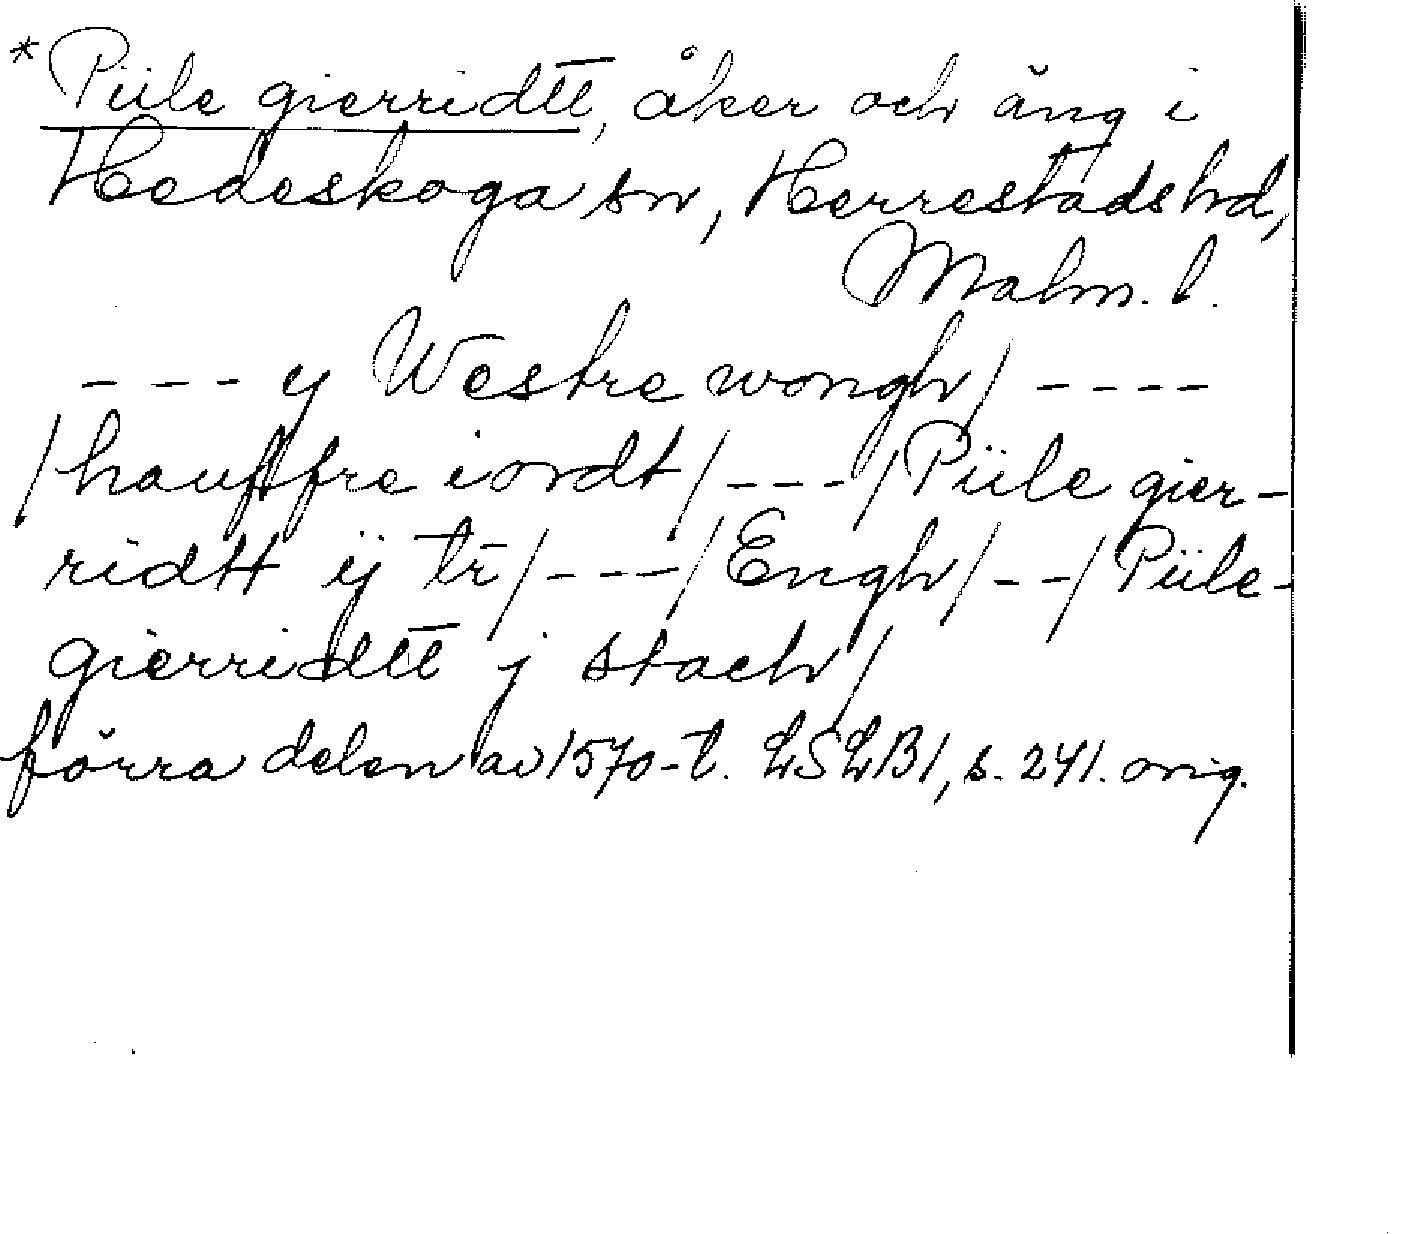 *Piile gierridtt, åker och äng i
Hedeskoga sn, Herrestads hd,
Malm. l.
- - - y Westre wongh/ - - - -
/hauffre iordt/ - - - /Piile gier-
ridtt ij tr/ - - - /Engh/ - - /Piile-
gierridtt j stach/
förra delen av 1570-t. LSLB1, s. 241. orig.